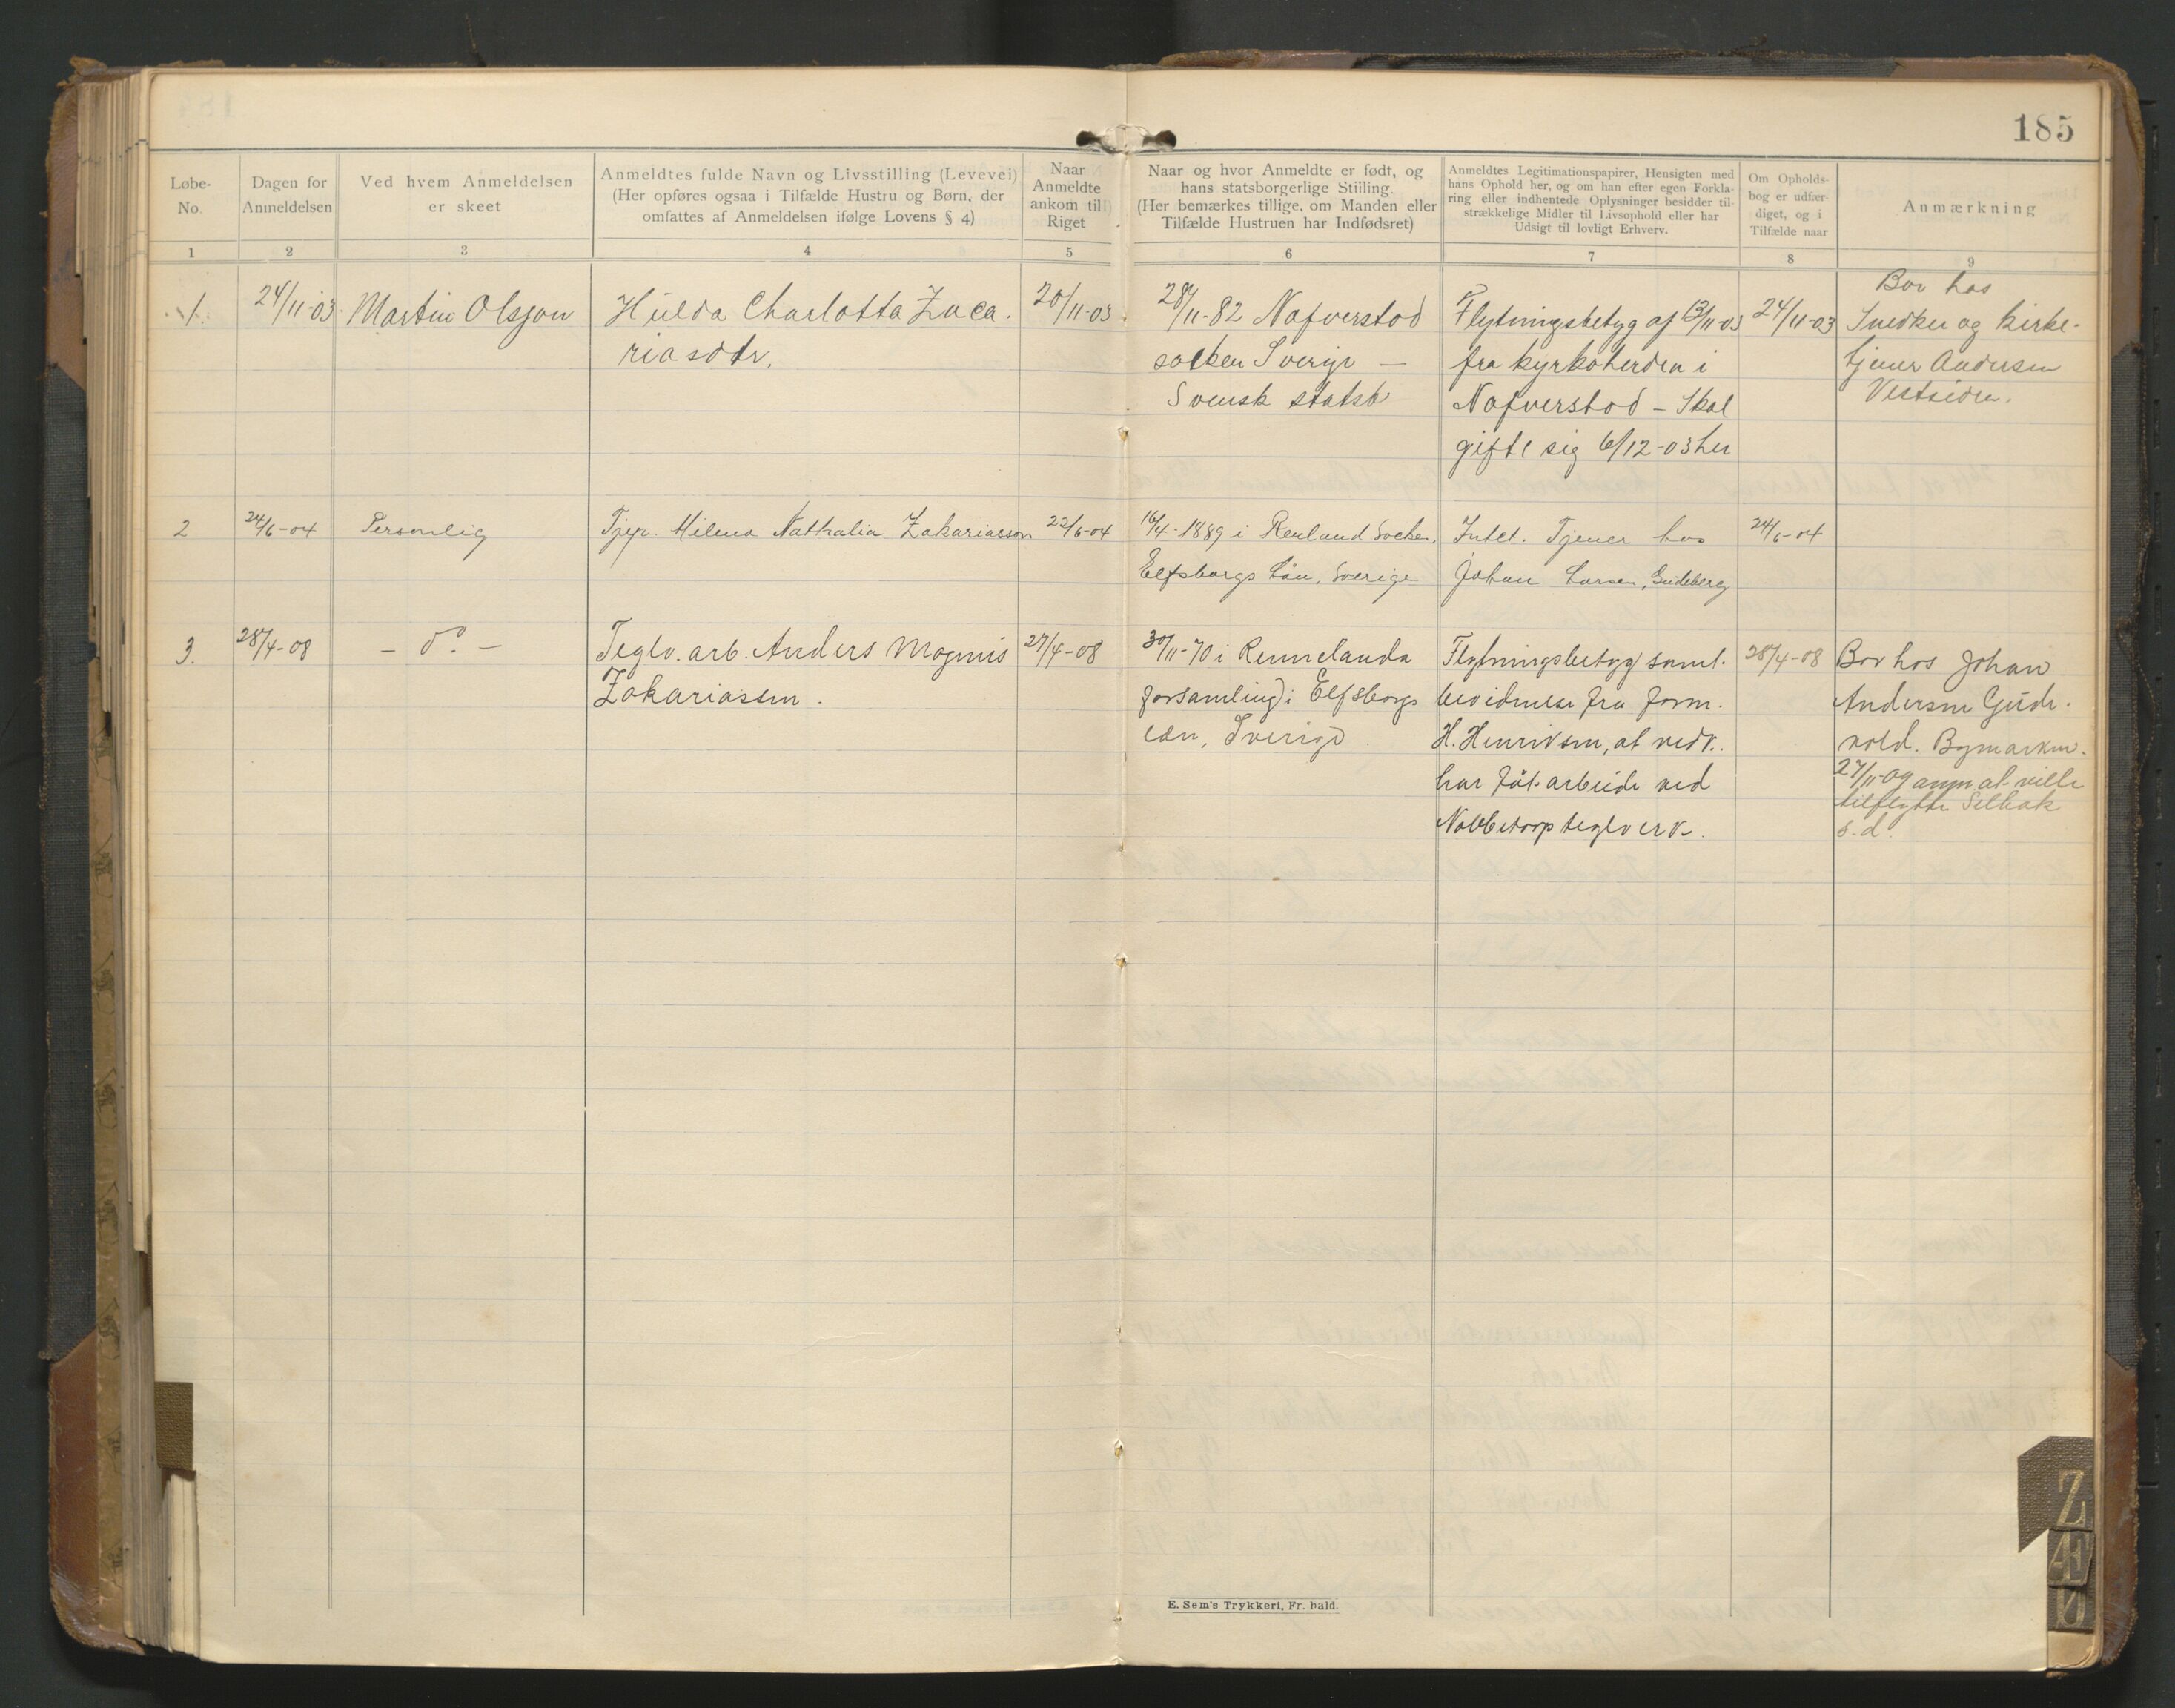 185
Løbe-
No.
Dagen for
Anmeldelsen
Ved hvem Anmeldelsen
er skeet
Anmeldtes fulde Navn og Livsstilling (Levevei)
(Her opføres ogsaa i Tilfælde Hustru og Børn, der
omfattes af Anmeldelsen ifølge Lovens § 4)
Naar
Anmeldte
ankom til
Riget
Naar og hvor Anmeldte er født, og
hans statsborgerlige Stilling.
(Her bemærkes tillige, om Manden eller
Tilfælde Hustruen har Indfødsret)
Anmeldtes Legitimationspapirer, Hensigten med
hans Ophold her, og om han efter egen Forkla-
ring eller indhentede Oplysninger besidder til-
strækkelige Midler til Livsophold eller har
Udsigt til lovligt Erhverv.
Om Opholds-
bog er udfær-
diget, og i
Tilfælde naar
Anmærkning
1 2 3 4 5 6 7 8 9
1.
24/11-03
Martin Olsson
Hulda Charlotta Zaca.
riasdtr.
20/11-03
28/11-82 Nafverstad
socken Sverige —
Svensk statsb
Flytningsbetyg af 13/11-03
fra kyrkoherden i
Nafverstad - Skal
gifte sig 6/12-03 her
24/11-03
Bor hos
Snedker og kirke-
tjener Andersen
Vestsiden.
2
24/6-04
Personlig
Tjep. Milena Nathalia Zakariasson
22/6-04
16/4-1889 i Renland Socken,
Elfsborgs Län, Sverige
Intet. Tjener hos
Johan Larsen, Gudeberg
24/6-04
3.
28/4-08
- do. -
Teglv. arb. Anders Magnus
Zakariassen.
27/4-08
30/11-70 i Rennelanda
forsamling i Elfsborgs
län, Sverige
Flytningsbetyg samt.
bevidnelse fra form.
H. Henriksen, at vedk.
har fåt arbeide ved
Nabbetorp teglverk.
28/4-08
Bor hos Johan
Andersen Gude-
vold. Bymarken.
27/11-09 anm at ville
tilflytte Selbak
s.d.
E. Sem's Trykkeri, Fr. hald.
Z
Æ
Ø